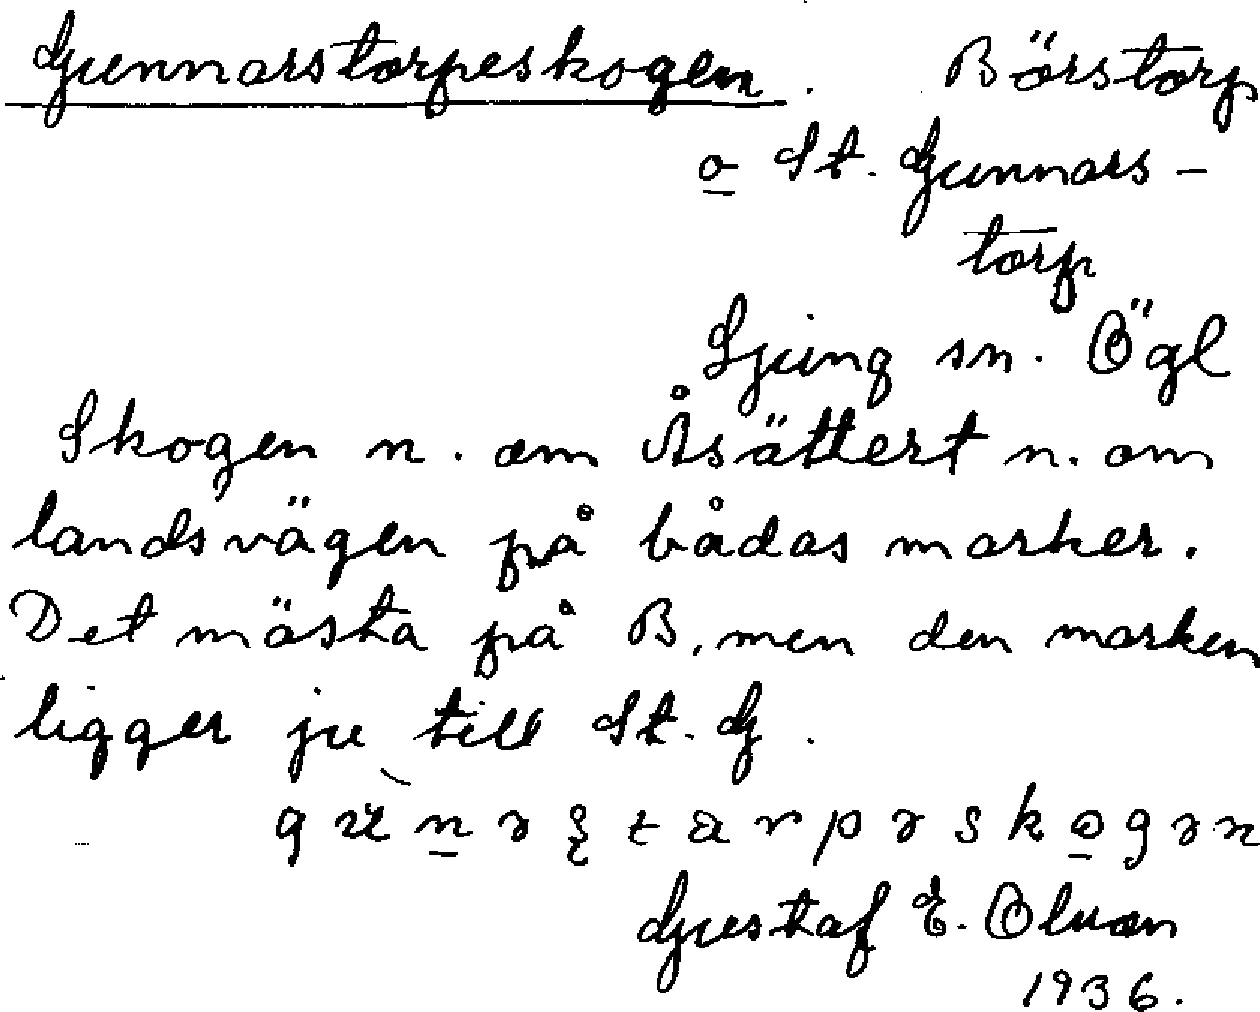 Gunnarstorpeskogen. Börstorp
o St. Gunnars-
torp
Ljung sn. Ögl
Skogen n. om Åsättert n. om
landsvägen på bådas marker.
Det mästa på B, men den marken
ligger ju till St. G.
Gustaf E. Olsson
1936.